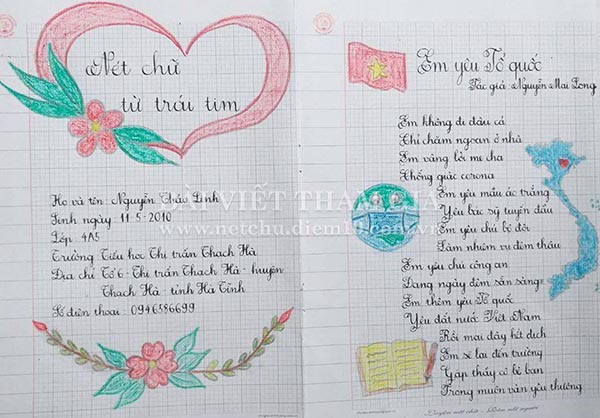 Nét chữ
từ trái tim
Họ và tên: Nguyễn Thảo Linh
Sinh ngày: 11-5-2010
Lớp: 4A5
Trường Tiểu học Thị trấn Thạch Hà
Địa chỉ Tổ 6 - Thị trấn Thạch Hà - huyện
Thạch Hà - tỉnh Hà Tĩnh
Số điện thoại: 0946586699
BÀI VIẾT THAM GIA
www.netchu.diem10.com.vn
Em yêu Tổ quốc
Tác giả: Nguyễn Mai Long
Em không đi đâu cả
Chỉ chăm ngoan ở nhà
Em vâng lời mẹ cha
Chống giặc corona
Em yêu màu áo trắng
Yêu bác sỹ tuyến đầu
Em yêu chú bộ đội
Làm nhiệm vụ đêm thâu
Em yêu chú công an
Đang ngày đêm sẵn sàng
Em thêm yêu Tổ quốc
Yêu đất nước Việt Nam
Rồi mai đây hết dịch
Em sẽ lại đến trường
Gặp thầy cô bè bạn
Trong muôn vàn yêu thương